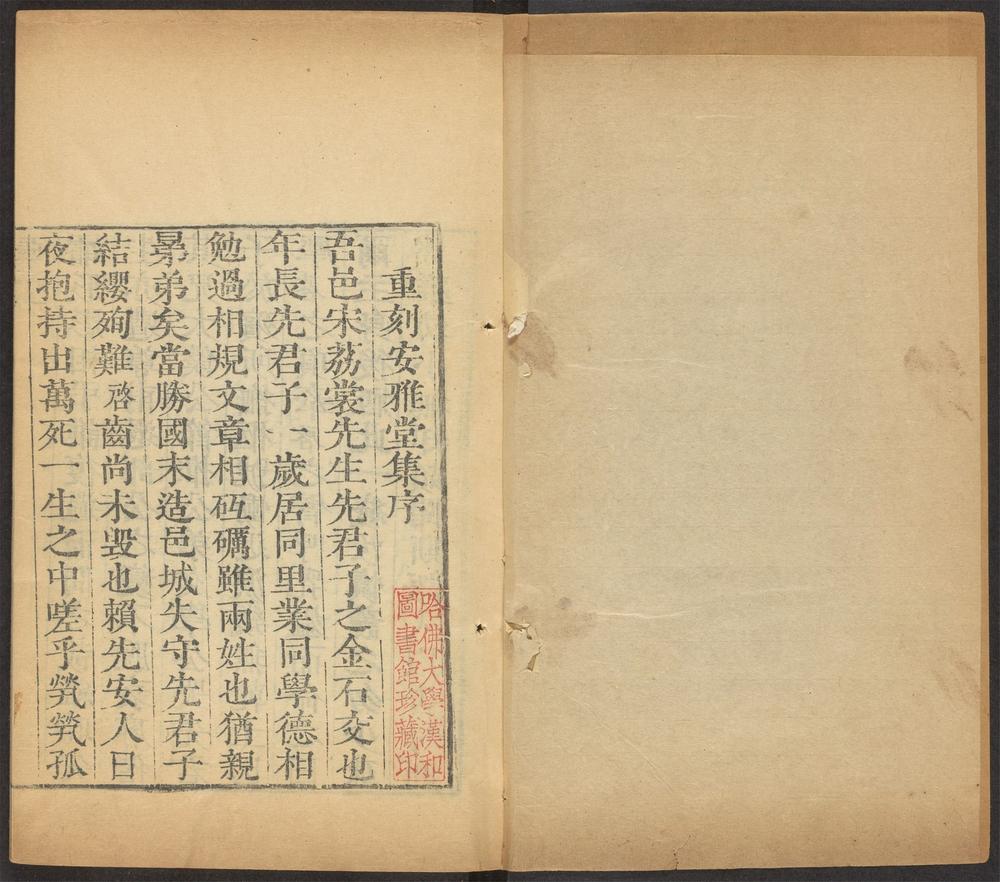 重刻安雅堂集序
吾邑宋荔裳先生先君子之金石交也
年長先君子一歲居同里業同學德相
勉過相規文章相砥礪雖兩姓也猶親
晜弟矣當勝國末造邑城失守先君子
結纓殉難啓齒尚未毀也賴先安人日
夜抱持出萬死一生之中嗟乎煢煢孤
哈佛大學漢和
圖書館珍藏印